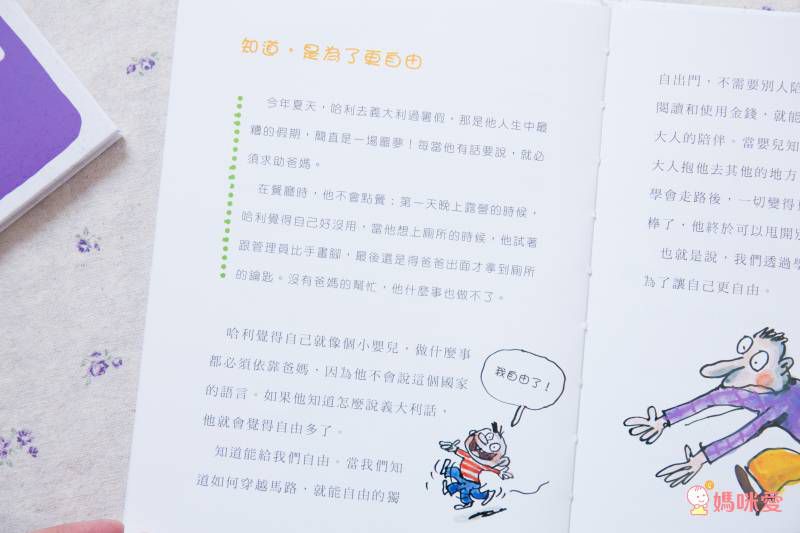 知道，是為了更自由
今年夏天，哈利去義大利過暑假，那是他人生中最
糟的假期，簡直是一場噩夢！每當他有話要說，就必
須求助爸媽。
在餐廳時，他不會點餐；第一天晚上露營的時候，
哈利覺得自己好沒用，當他想上廁所的時候，他試著
跟管理員比手畫腳，最後還是得爸爸出面才拿到廁所
的鑰匙。沒有爸媽的幫忙，他什麼事也做不了。
哈利覺得自己就像個小嬰兒，做什麼事
都必須依靠爸媽，因為他不會說這個國家
的語言。如果他知道怎麼說義大利話，
他就會覺得自由多了。
知道能給我們自由。當我們知
道如何穿越馬路，就能自由的獨
我自由了！
自出門，不需要別人陪
閱讀和使用金錢，就能
大人的陪伴。當嬰兒知
大人抱他去其他的地方
學會走路後，一切變得
棒了，他終於可以甩開
也就是說，我們透過
為了讓自己更自由。
媽咪愛